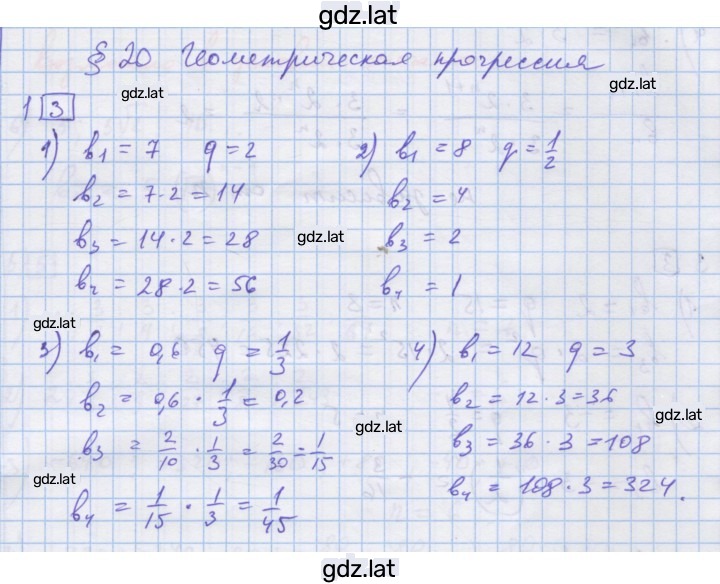 gdz.lat
§ 20 Геометрическая прогрессия
gdz.lat
gdz.lat
1 3
1) b₁ = 7 q = 2
b₂ = 7·2 = 14
b₃ = 14·2 = 28
b₄ = 28·2 = 56
2) b₁ = 8 q = 1/2
b₂ = 4
b₃ = 2
b₄ = 1
gdz.lat
gdz.lat
3) b₁ = 0,6 q = 1/3
b₂ = 0,6 · 1/3 = 0,2
b₃ = 2/10 · 1/3 = 2/30 = 1/15
b₄ = 1/15 · 1/3 = 1/45
4) b₁ = 12 q = 3
b₂ = 12·3 = 36
b₃ = 36·3 = 108
b₄ = 108·3 = 324.
gdz.lat
gdz.lat
gdz.lat
gdz.lat